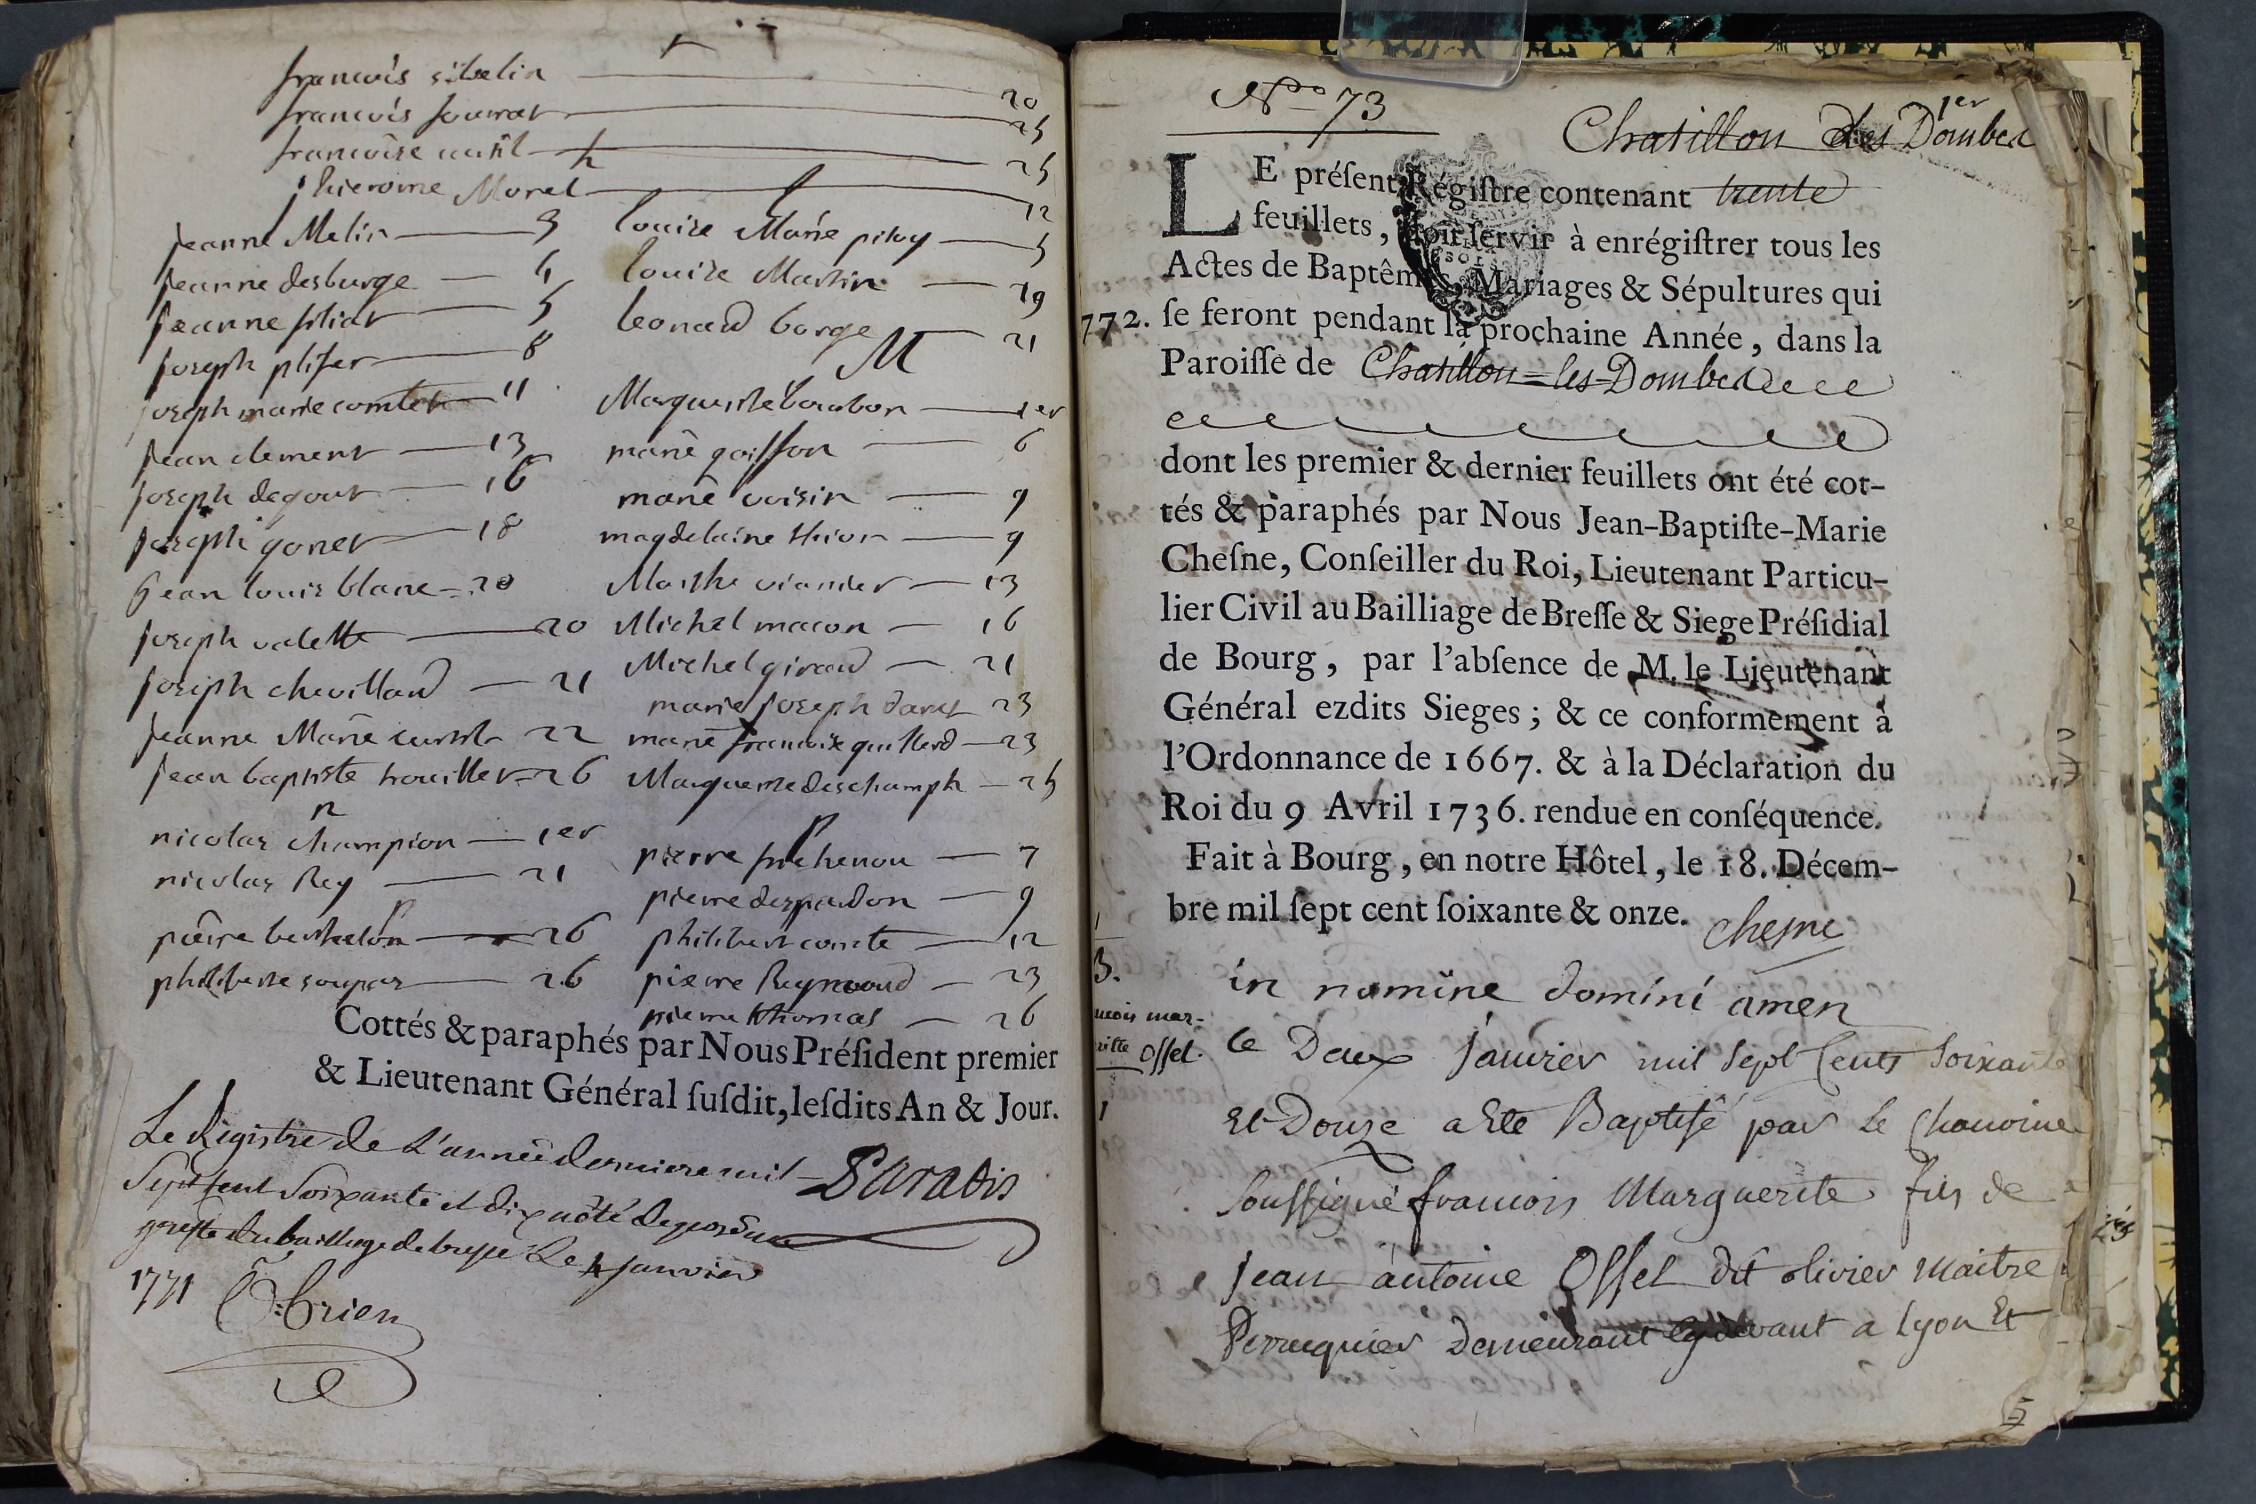 f
francois sibelin 20
francois fournat 25
francoise curtil 25
h
hierome Morel 12
j
jeanne Melin 3
jeanne desburge 4
jeanne filiat 5
joseph plifer 8
joseph marie comtet 11
jean clement 13
joseph degout 16
joseph gonet 18
jean louis blanc 20
joseph valette 20
joseph chevillard 21
jeanne Marie curtil 22
jean baptiste trouiller 26
n
nicolas champion 1er
nicolas Rey 21
p
pierre berthelon 26
philiberte soupar 26
l
louise Marie piroy 5
louise Martin 19
leonard borge 21
M
Marguerite bourbon 1er
marie goiffon 6
marie voisin 9
magdelaine thion 9
Marthe vianier 13
Michel macon 16
Michel giraud 21
marie joseph daret 23
marie francoise guillerd 23
Marguerite deschamph 25
p
pierre frichenou 7
pierre despardon 9
philibert comte 12
pierre Reymoud 23
pierre thomas 26
Cottés & paraphés par Nous Préſident premier
& Lieutenant Général ſuſdit, leſdits An & Jour.
Paradis
Le Registre de L'année derniere mil
Sept Cent Soixante et dix a été deposé au
greffe du bailliage de bresse Le 4 janvier
1771 Brien
No 73
1er
Chatillon les Dombes
LE préſent Régiſtre contenant trente
feuillets, doit ſervir à enrégiſtrer tous les
Actes de Baptêmes, Mariages & Sépultures qui
772. ſe feront pendant la prochaine Année, dans la
Paroiſſe de Chatillon=les-Dombes
dont les premier & dernier feuillets ont été cot-
tés & paraphés par Nous Jean-Baptiſte-Marie
Cheſne, Conſeiller du Roi, Lieutenant Particu-
lier Civil au Bailliage de Breſſe & Siege Préſidial
de Bourg, par l'abſence de M. le Lieutenant
Général ezdits Sieges; & ce conformement à
l'Ordonnance de 1667. & à la Déclaration du
Roi du 9 Avril 1736. rendue en conſéquence.
Fait à Bourg, en notre Hôtel, le 18. Décem-
bre mil ſept cent ſoixante & onze.
Chesne
B.
ncois mar-
rite Offel.
1
in nomine domini amen
le Deux janvier mil Sept Cents Soixante
Et Douze a Ete Baptisé par le Chanoine
Soussigné francois Marguerite fils de
jean antoine Offel dit olivier maitre
Perruquier demeurant cy devant a Lyon Et
5